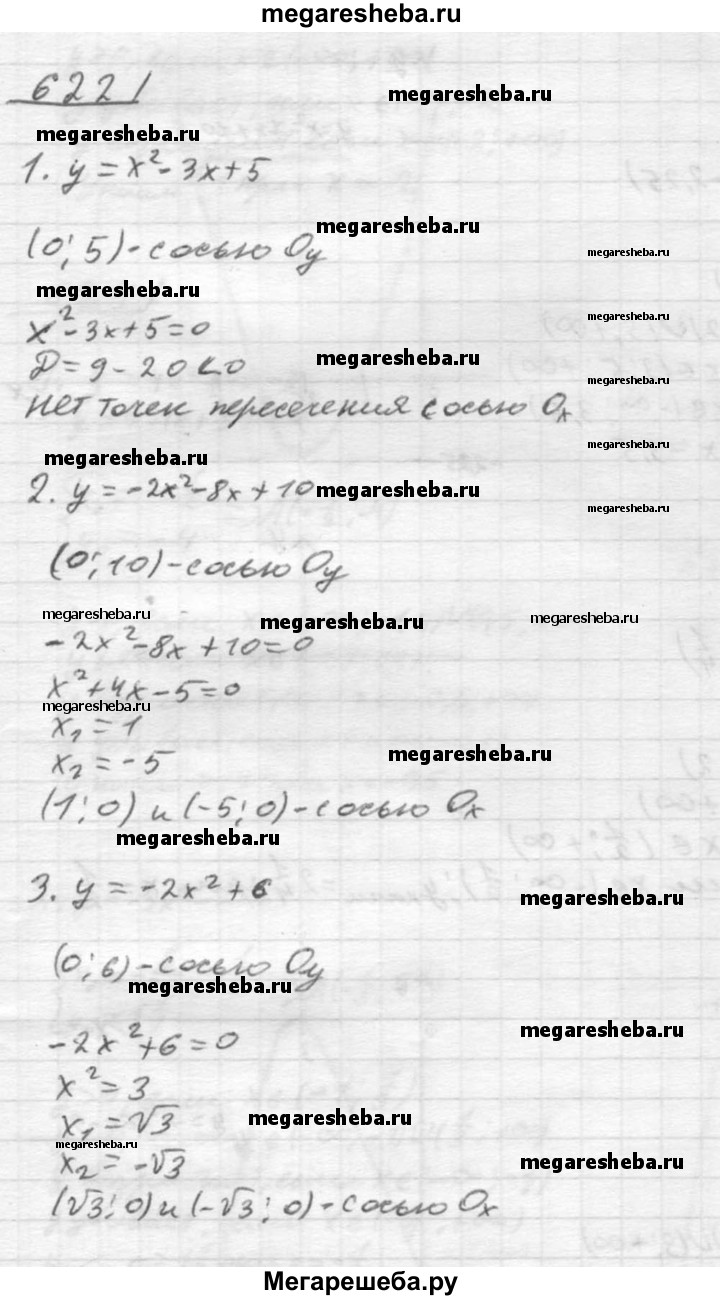 megaresheba.ru
622 |
megaresheba.ru
megaresheba.ru
1. y = x² - 3x + 5
megaresheba.ru
(0; 5) - с осью Oy
megaresheba.ru
megaresheba.ru
megaresheba.ru
x² - 3x + 5 = 0
megaresheba.ru
D = 9 - 20 < 0
megaresheba.ru
нет точек пересечения с осью Ox
megaresheba.ru
megaresheba.ru
2. y = -2x² - 8x + 10
megaresheba.ru
megaresheba.ru
(0; 10) - с осью Oy
megaresheba.ru
megaresheba.ru
megaresheba.ru
-2x² - 8x + 10 = 0
x² + 4x - 5 = 0
megaresheba.ru
x₁ = 1
x₂ = -5
megaresheba.ru
(1; 0) и (-5; 0) - с осью Ox
megaresheba.ru
3. y = -2x² + 6
megaresheba.ru
(0; 6) - с осью Oy
megaresheba.ru
megaresheba.ru
-2x² + 6 = 0
x² = 3
x₁ = √3
megaresheba.ru
megaresheba.ru
x₂ = -√3
megaresheba.ru
(√3; 0) и (-√3; 0) - с осью Ox
Мегарешеба.ру